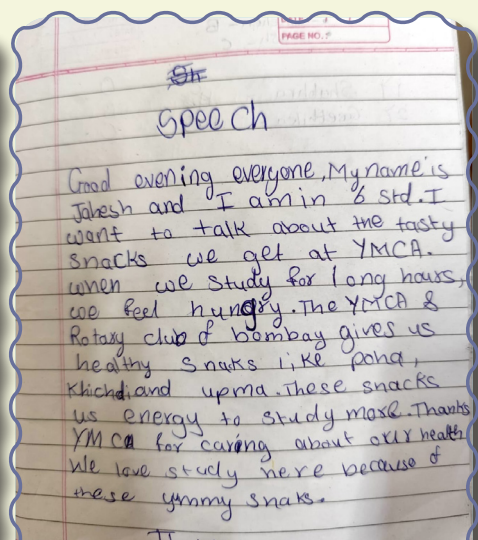 PAGE NO.:
Speech
Good evening everyone, My name is
Jahesh and I am in 6 std. I
want to talk about the tasty
snacks we get at YMCA.
when we study for long hours,
we feel hungry. The YMCA &
Rotary club of bombay gives us
healthy snaks like poha,
Khichdi and upma. These snacks
us energy to study more. Thanks
YMCA for caring about our health
We love study here because of
these yummy snaks.